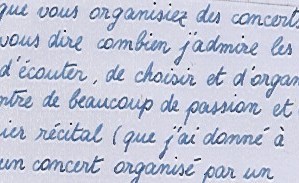 que vous organisiez des concerts
vous dire combien j'admire les
d'écouter, de choisir et d'organ
ntre de beaucoup de passion et
ier récital (que j'ai donné à
un concert organisé par un